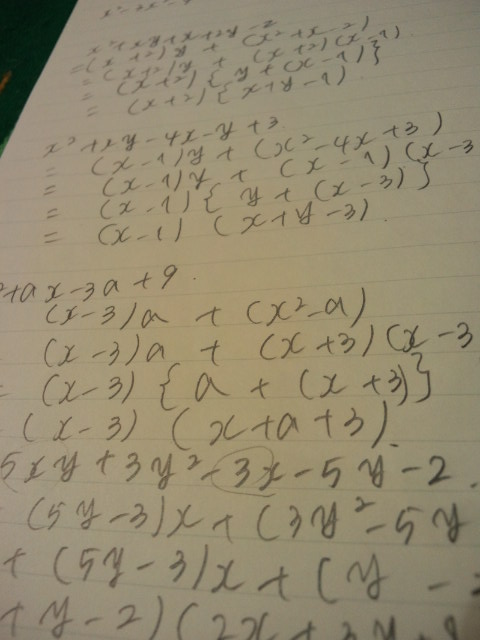 x²+xy+x+2y-2
= (x+2)y + (x²+x-2)
= (x+2)y + (x+2)(x-1)
= (x+2){y+(x-1)}
= (x+2){x+y-1)
x²+xy-4x-y+3
= (x-1)y + (x²-4x+3)
= (x-1)y + (x-1)(x-3
= (x-1){ y + (x-3)}
= (x-1) (x+y-3)
²+ax-3a+9.
(x-3)a + (x²-a)
(x-3)a + (x+3)(x-3
= (x-3) { a + (x+3)}
(x-3) (x+a+3).
5xy+3y²-3x-5y-2.
(5y-3)x+(3y²-5y
+ (5y-3)x+(y -
+y-2)(2x+3y